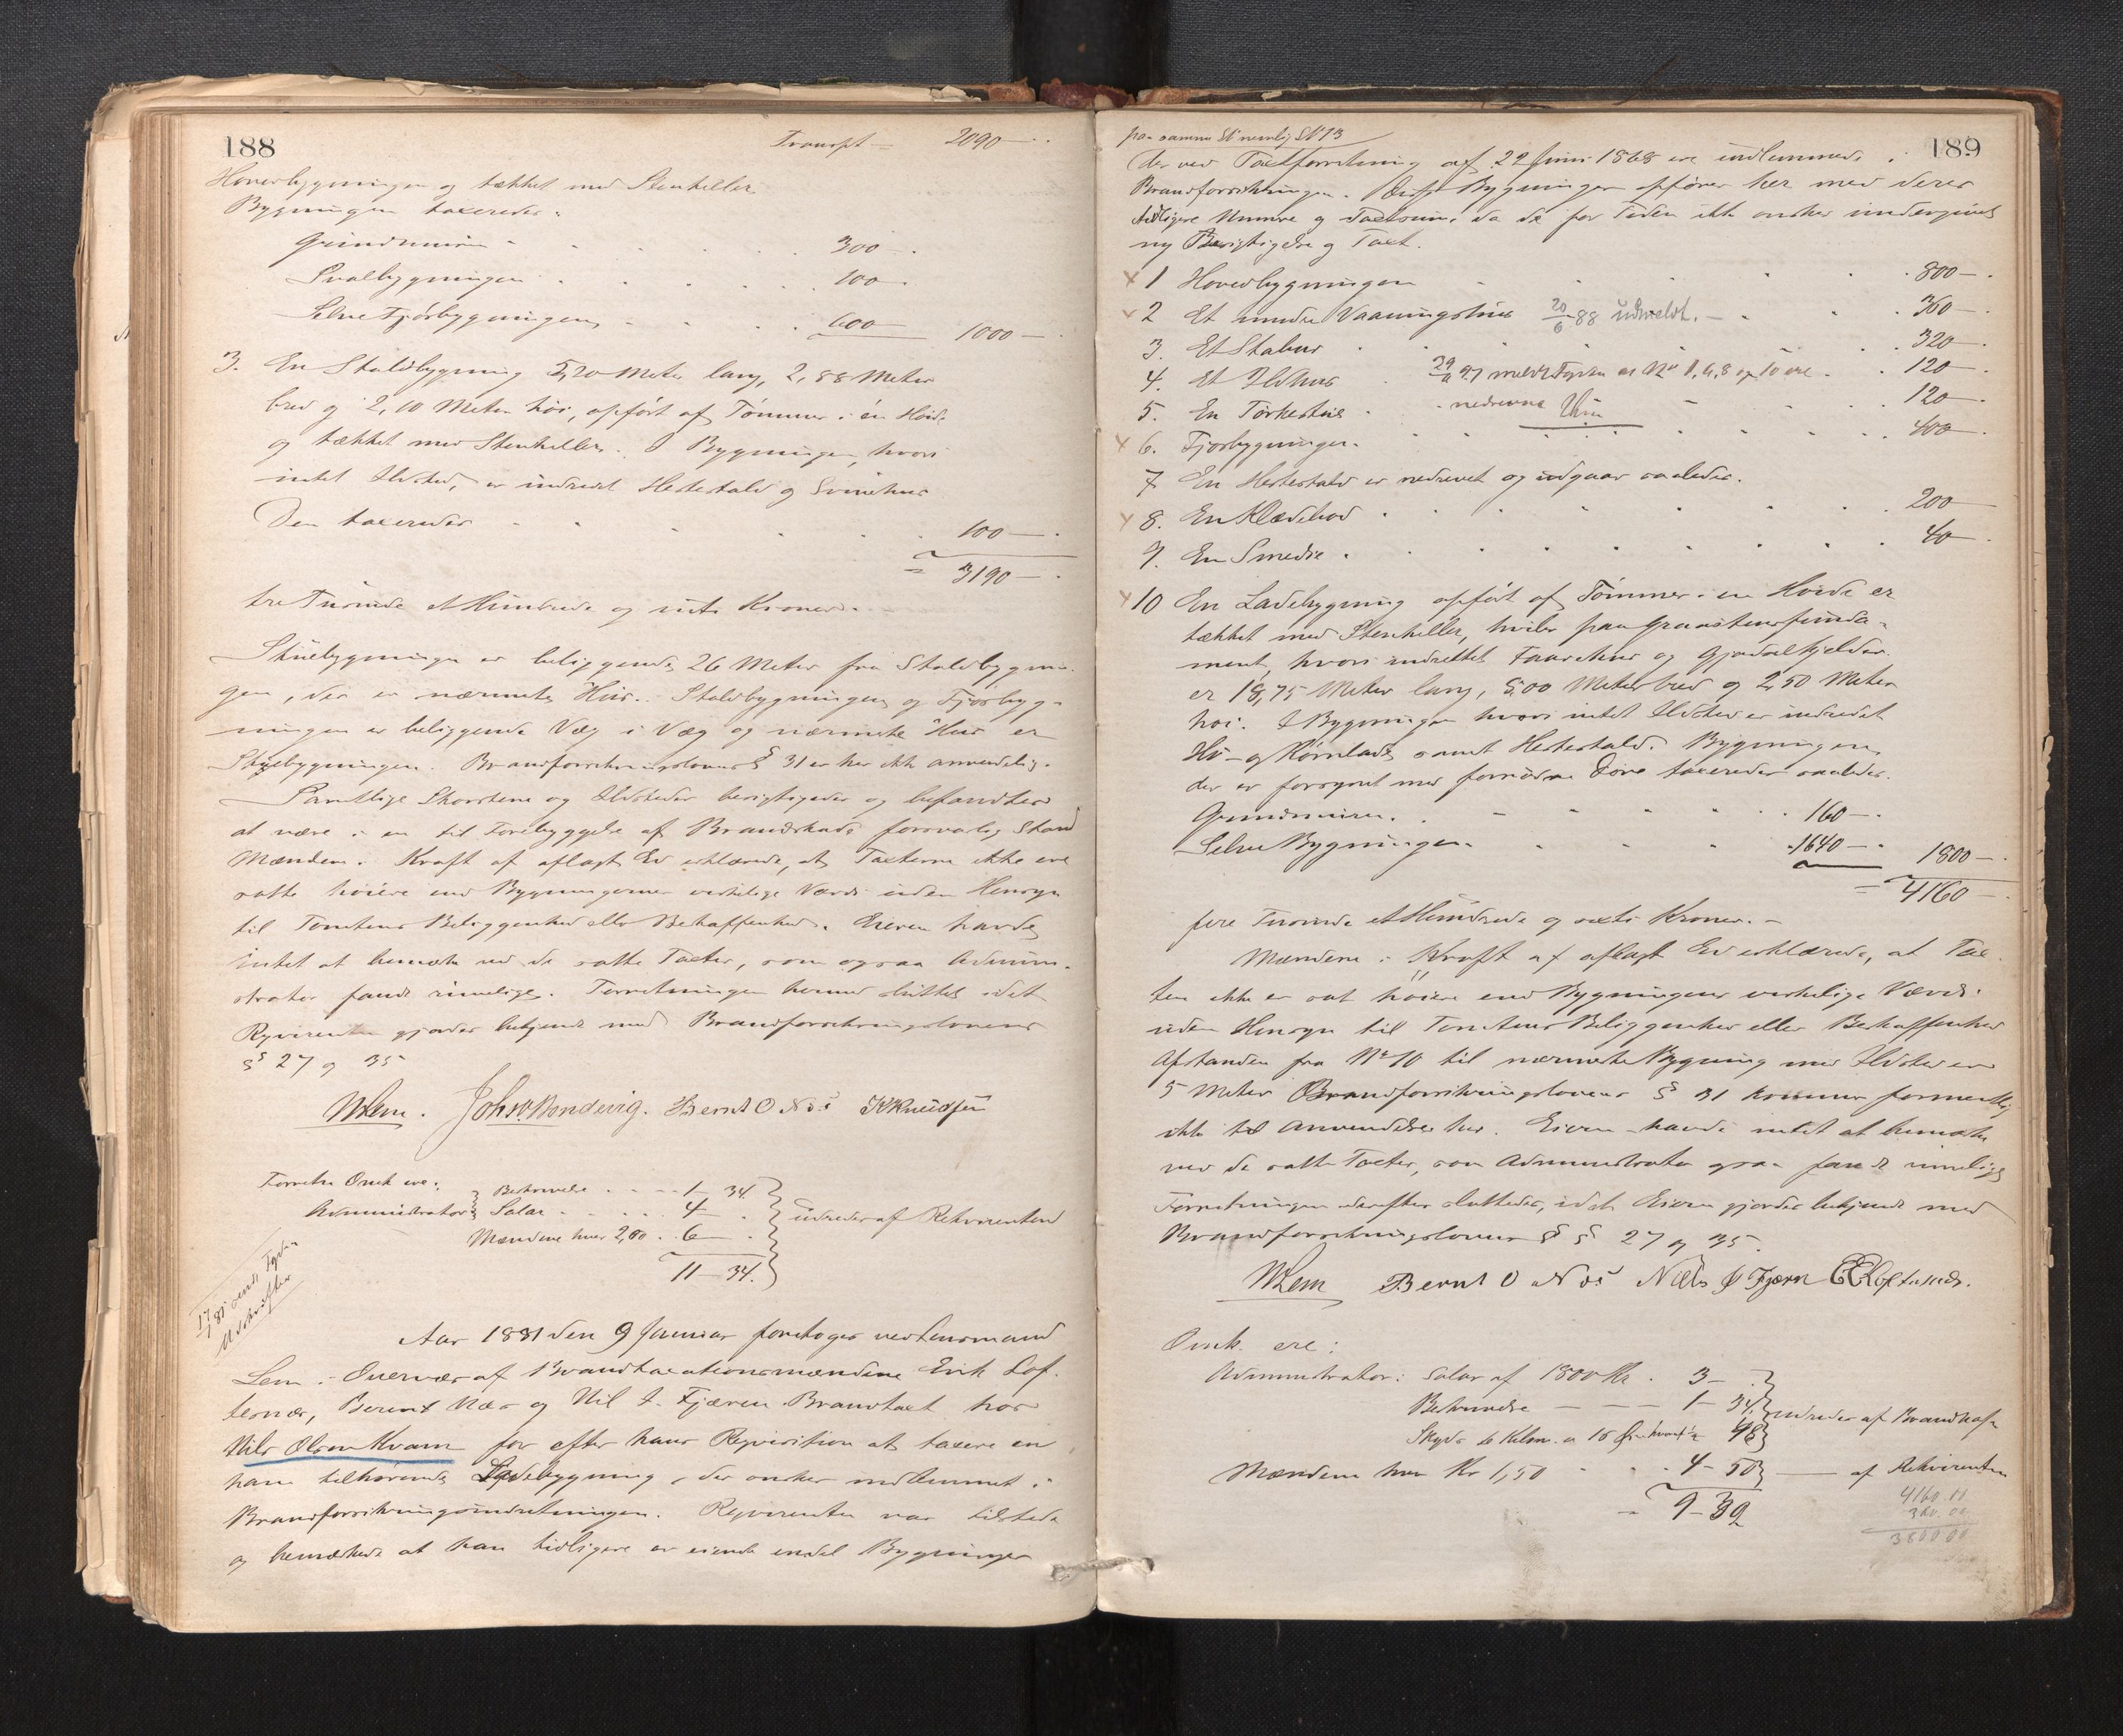 188
Transpt — 2090 —
Hovedbygningen og tækket med Stenheller
Bygningen taxeredes:
Grundmuren 300 —
Svalbygningen 100 —
Selve Fjøsbygningen 600 — 1000 —
3. En Staldbygning 5,20 Meter lang, 2,88 Meter
bred og 2,10 Meter høi, opført af Tømmer i én Høide
og tækket med Stenheller. I Bygningen, hvori
intet Ildsted, er indredet Hestestald og Svinehus
Den taxeredes 100 —
= 3190 —
tre Tusinde et Hundrede og nitti Kroner. —
Stuebygningen er beliggende 26 Meter fra Staldbygnin-
gen, der er nærmeste Hus. Staldbygningen og Fjøsbyg-
ningen er beliggende Væg i Væg og nærmeste Hus er
Stuebygningen. Brandforsikringslovens § 31 er her ikke anvendelig.
Samtlige Skorstene og Ildsteder besigtigedes og befandtes
at være i en til Forebyggelse af Brandskade forsvarlig Stand
Mændene i Kraft af aflagt Ed erklærede, at Taxterne ikke ere
satte høiere end Bygningernes virkelige Værdi uden Hensyn
til Tomtens Beliggenhed eller Beskaffenhed. Eieren havde
intet at bemærke ved de satte Taxter, som ogsaa Admini-
strator fandt rimelige. Forretningen hermed sluttet idet
Rqvirenten gjordes bekjendt med Brandforsikringslovens
§§ 27 og 35
MLem. Johs. Bondevig. Bernt O Nøs K Knudsen
Forretn Omk ere:
Administrator: Beskrivelse 1 — 34
Salær 4 —
Mændene hver 2,00 . 6 —
11 — 34.
udredes af Rekvirenten
17/1 81 sendt Fgdn
Udskrifter
Aar 1881 den 9 Januar foretoges ved Lensmand
Lem i Overvær af Brandtaxationsmændene Erik Lof-
tesnæs, Berent Næs og Nil J. Fjæren Brandtaxt hos
Nils Olsen Kvam for efter hans Reqvisition at taxere en
ham tilhørende Ladebygning, der ønskes indlemmet i
Brandforsikringsindretningen. Reqvirenten var tilstede
og bemærkede at han tidligere er eiende endel Bygninger
189
paa samme St nemlig St N 13
der ved Taxtforretning af 22 Juni 1868 ere indlemmede i
Brandforsikringen. Disse Bygninger opføres her med deres
tidligere Numre og Taxtsum, da de for Tiden ikke ønskes undergivet
ny Besigtigelse og Taxt.
x 1 Hovedbygningen 800 —
x 2 Et mindre Vaaningshus 20/6 88 udmeldt. — 360 —
3. Et Stabur 320 —
4. Et Ildhus 29/ 97 meldt Fogden at No 1, 6, 8 og 10 ere 120 —
5. En Tørkestue nedrevne 120 —
x 6. Fjøsbygningen 400 —
7 En Hestestald er nedrevet og udgaar saaledes.
x 8. En Klædebod 200
9. En Smedie 40 —
x 10 En Ladebygning opført af Tømmer i en Høide er
tækket med Stenheller, hviler paa Graastensfunda-
ment, hvori indrettet Faarehus og Gjødselkjelder
er 18,75 Meter lang, 5,00 Meter bred og 2,50 Meter
høi. I Bygningen hvori intet Ildsted er indredet
Hø- og Kornlade samt Hestestald. Bygningen,
der er forsynet med fornødne Døre taxeredes saaledes.
Grundmuren 160 —
Selve Bygningen 1640 — 1800 —
= 4160 —
fire Tusinde et Hundrede og sexti Kroner. —
Mændene i Kraft af aflagt Ed erklærede, at Tax-
ten ikke er sat høiere end Bygningens virkelige Værdi
uden Hensyn til Tomtens Beliggenhed eller Beskaffenhed
Afstanden fra No 10 til nærmeste Bygning med Ildsted er
5 Meter Brandforsikringslovens § 31 kommer formentlig
ikke til Anvendelse her. Eieren havde intet at bemærke
ved de satte Taxter, som Administrator ogsaa fandt rimelige
Forretningen derefter sluttedes, idet Eieren gjordes bekjendt med
Brandforsikringslovens §§ 27 og 35.
MLem Bernt O Nøs Niels J Fjærn EE Loftesnæs.
Omk. ere:
Administrator: Salær af 1800 Kr. 3 —
Beskrivelse — — — 1 — 34
Skyds 6 Kilm. a 16 Øre 48
udredes af Brandkassen
Mændene hver Kr 1,50 4 — 50 — af Rekvirenten
= 9 — 32
4160.00
360.00
3800 00